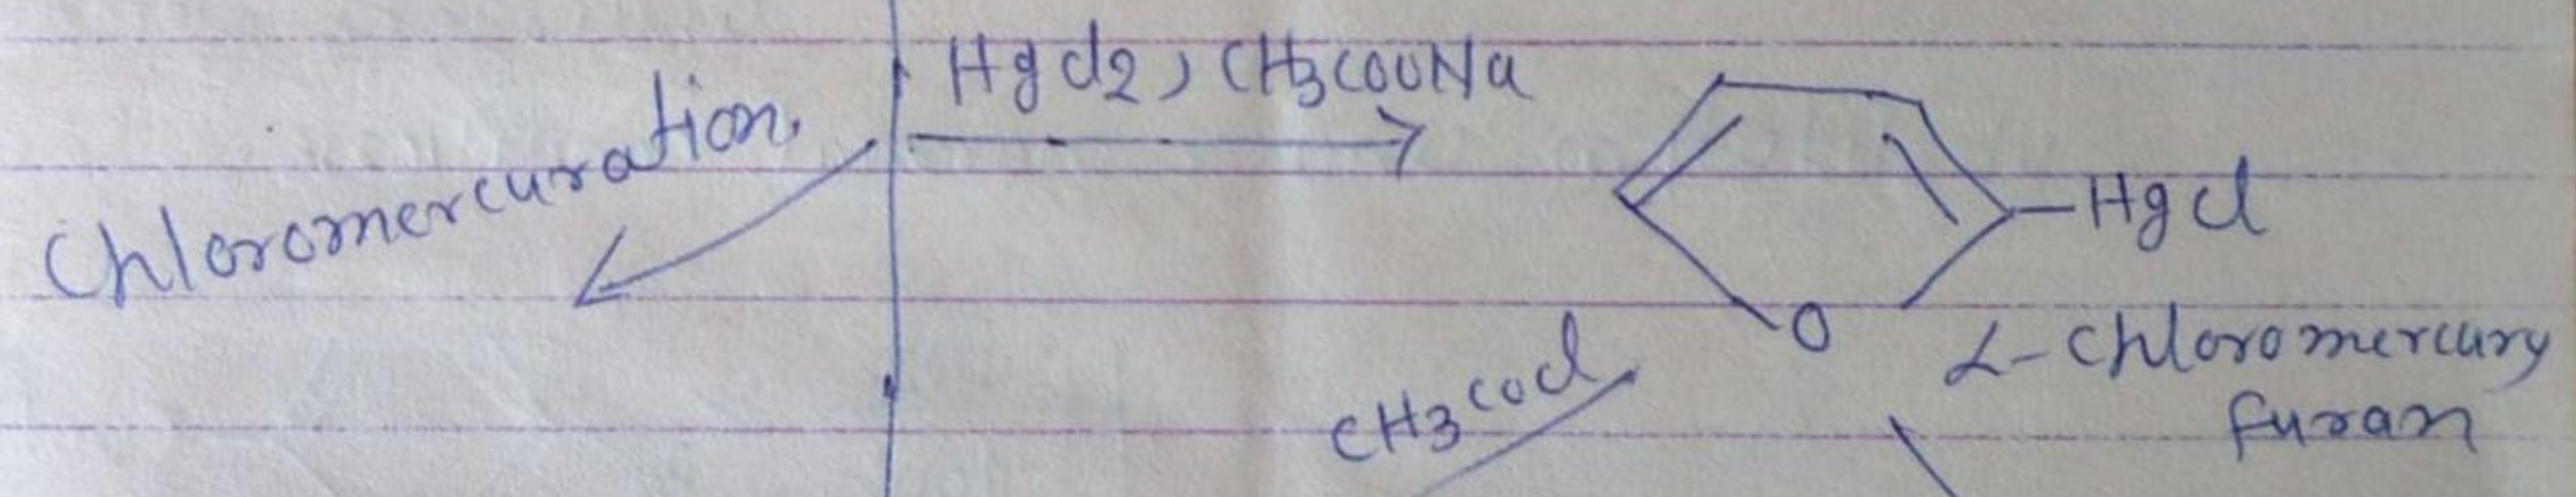 Chloromercuration
HgCl2, CH3COONa
HgCl
O
CH3COCl
2-Chloromercury
furan